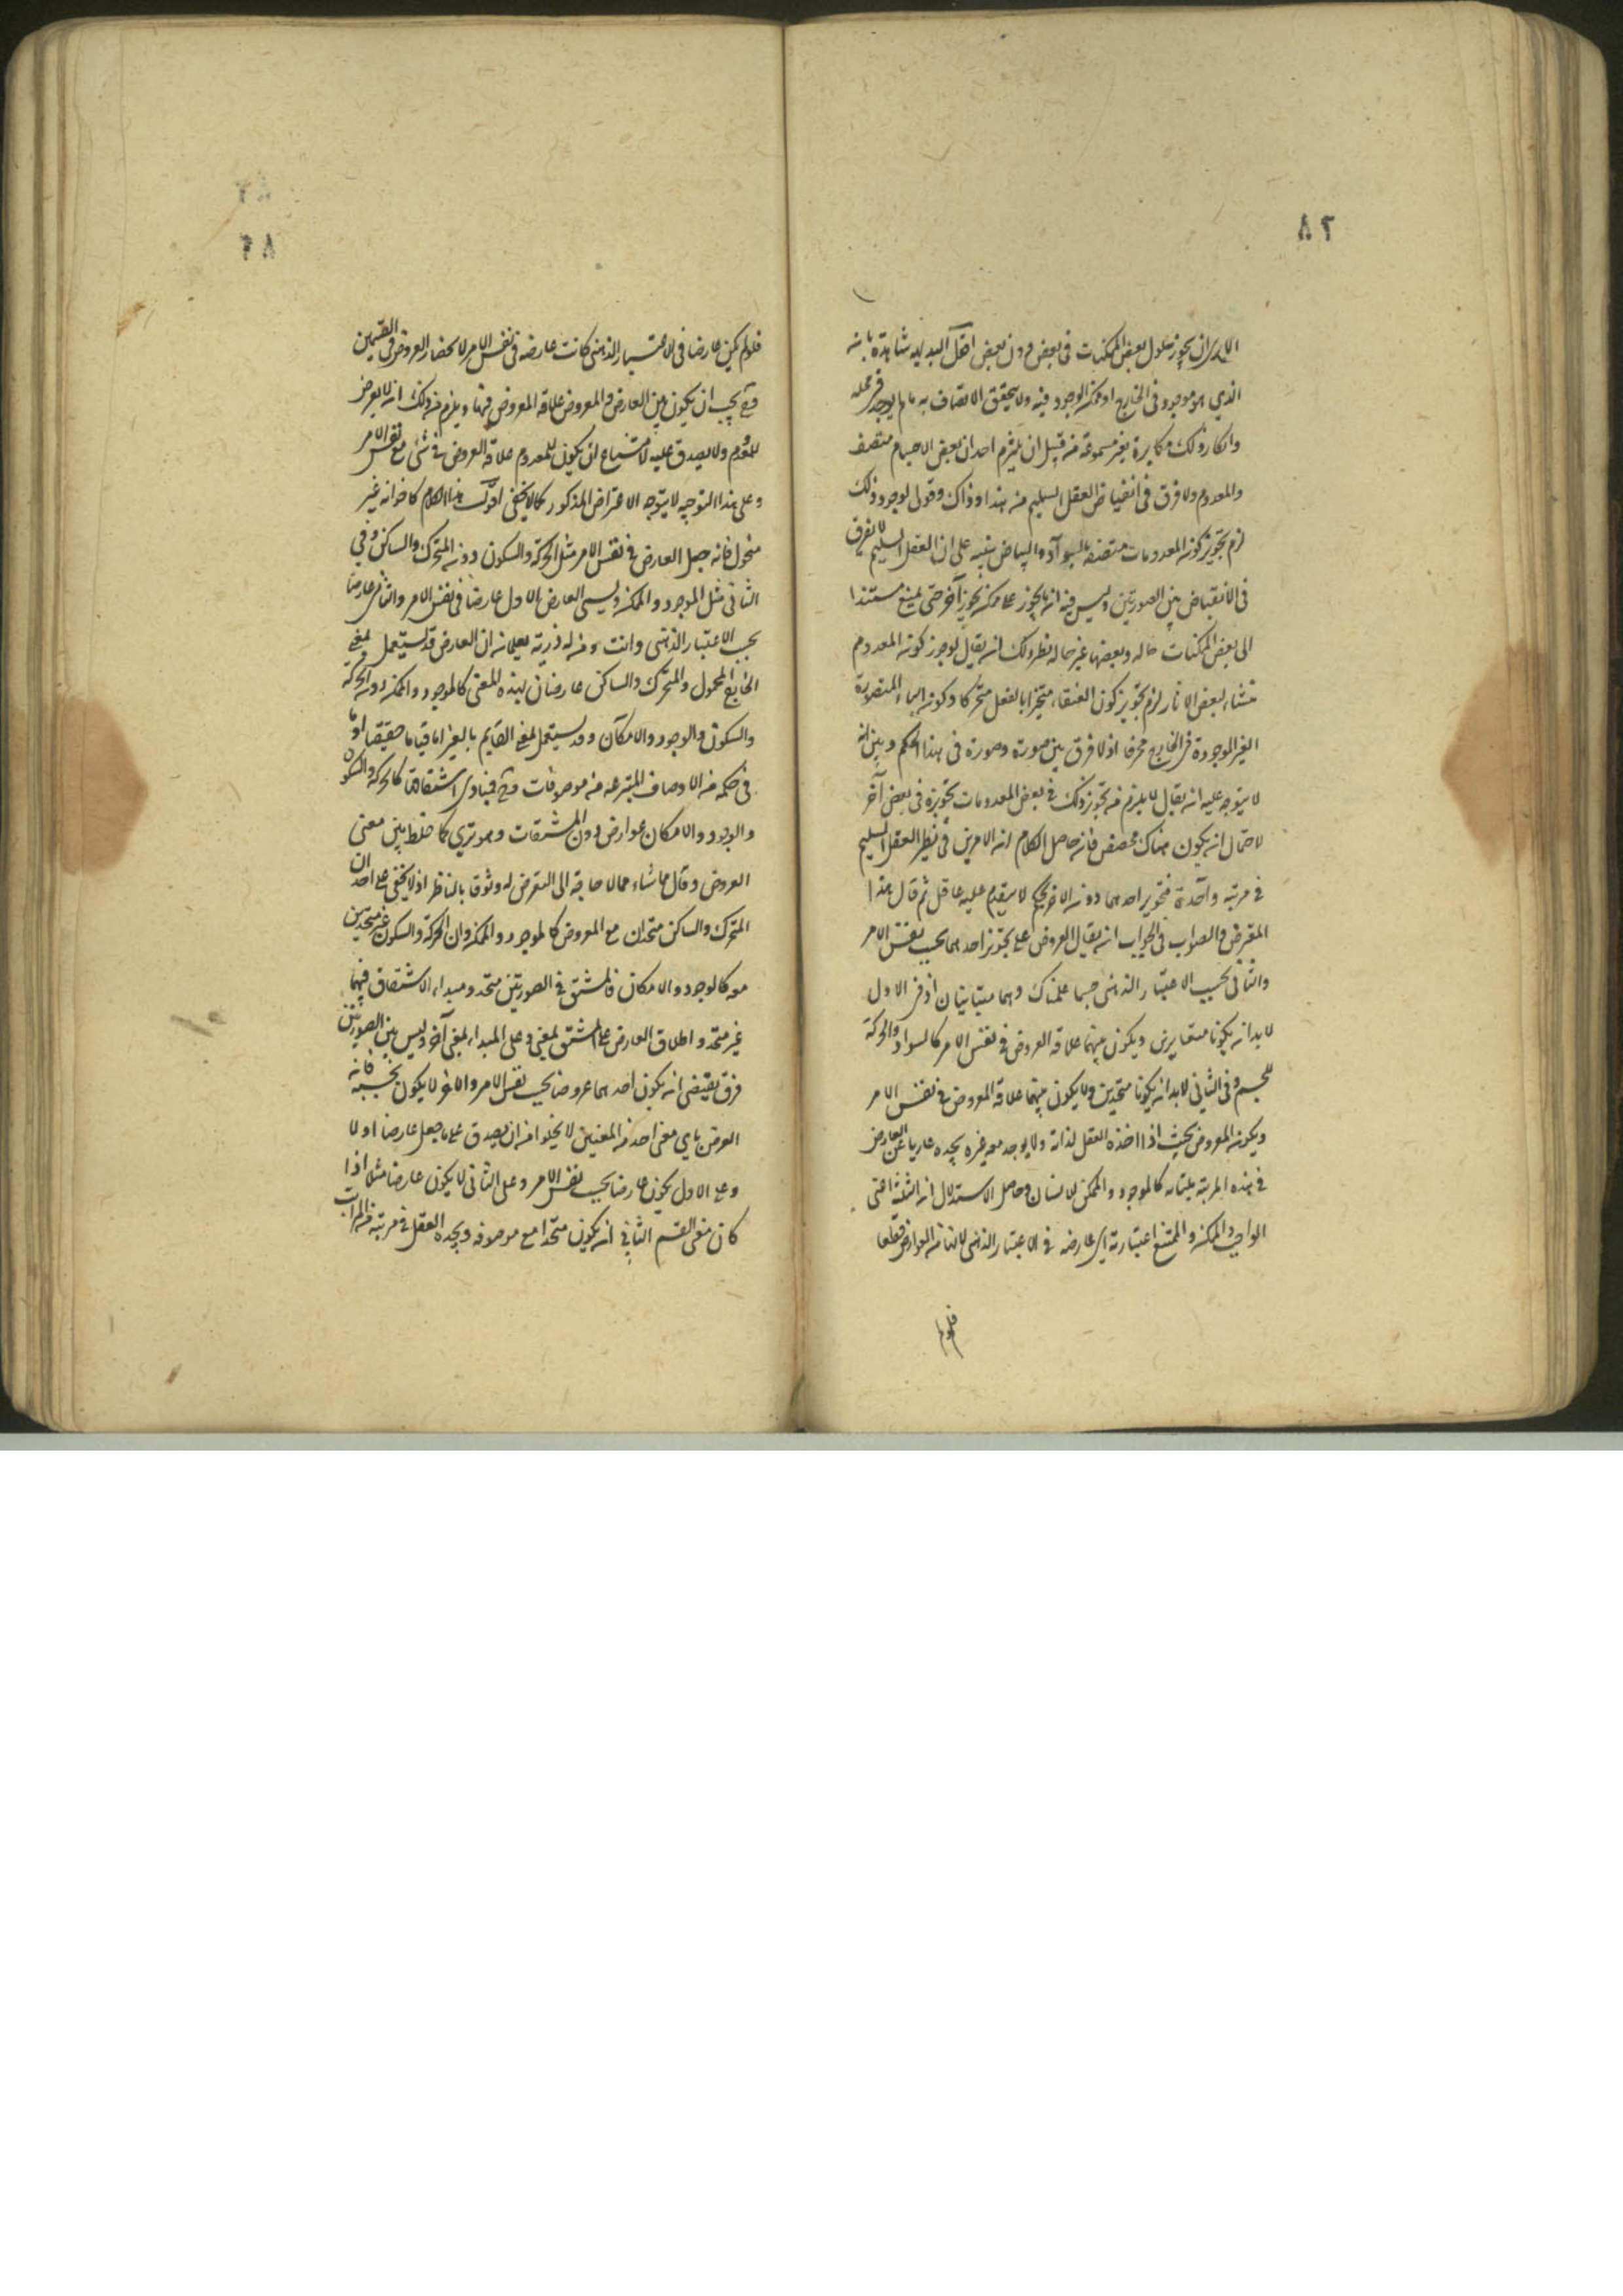 ٨٢
الا يرى ان يجوز حلول بعض الممكنات في بعض دون بعض اقول البديهة شاهدة بانه
الذي هو موجود في الخارج او ممكن الوجود فيه ولا يتحقق الاتصاف به ما لم يوجد في محله
وانكار ذلك مكابرة غير مسموعة من قبيل ان يلتزم احد ان بعض الاجسام متصف
والمعدوم ولا فرق في انقباض العقل السليم من هذا وذاك وقوله لو جوز ذلك
لزم تجويز كون المعدومات متصفة بالسواد والبياض تنبيه على ان العقل السليم لا يفرق
في الانقباض بين الصورتين وليس فيه انه تجويز ممكن تجويز آخر حتى يمنع مستندا
الى بعض الممكنات حالة وبعضها غير حالة نظير ذلك ان يقال لو جوز كون المعدوم
منشاء لبعض الاثار لزم تجويز كون العنقاء متحيزا بالفعل متحركا وكون الماء المتصورة
الغير الموجودة في الخارج محرقا اذ لا فرق بين صورة وصورة في هذا الحكم وبين انه
لا يتوجه عليه ان يقال لا يلزم من تجويز ذلك في بعض المعدومات تجويزه في بعض آخر
لاحتمال ان يكون هناك مخصص فان حاصل الكلام ان الامرين في نظر العقل السليم
في مرتبة واحدة فتجويز احدهما دون الاخر تحكم لا يقدم عليه عاقل ثم قال هذا
المعترض والصواب في الجواب ان يقال العروض على نحوين احدهما بحسب نفس الامر
والثاني بحسب الاعتبار الذهني حسبما علمناك وهما متباينان اذ في الاول
لا بد ان يكونا متغايرين ويكون بينهما علاقة العروض في نفس الامر كالسواد والحركة
للجسم وفي الثاني لا بد ان يكونا متحدين ولا يكون بينهما علاقة العروض في نفس الامر
ويكون المعروض بحيث اذا اخذه العقل لذاته ولا يوجد معه غيره يجده عاريا عن العارض
في هذه المرتبة كالموجود والممكن للانسان وحاصل الاستدلال ان الثلثة اعني
الواجب والممكن والممتنع اعتبارية اي عارضة في الاعتبار الذهني لانها من العوارض قطعا
فلو لم
٨٣
فلو لم يكن عارضا في الاعتبار الذهني كانت عارضة في نفس الامر لانحصار العروض في القسمين
وح يجب ان يكون بين العارض والمعروض علاقة العروض فيها ويلزم من ذلك انه لا يعرض
للمعدوم ولا يصدق عليه لامتناع ان يكون للمعدوم علاقة العروض في شئ مع نفس الامر
وعلى هذا التوجيه لا يتوجه الاعتراض المذكور كما لا يخفى اقول هذا الكلام كاخوانه غير
منخول فانه جعل العارض في نفس الامر مثل الحركة والسكون دون المتحرك والساكن وفي
الثاني مثل الموجود والممكن ويسمى العارض الاول عارضا في نفس الامر والثاني عارضا
بحسب الاعتبار الذهني وانت ومن له دربة يعلم ان العارض قد يستعمل بمعنى
الخارج المحمول والمتحرك والساكن عارضان بهذه المعنى كالموجود والممكن دون الحركة
والسكون والوجود والامكان وقد يستعمل بمعنى القايم بالغير اما قياما حقيقيا او ما
في حكمه من الاوصاف المنتزعة من موصوفات وح فمبادى اشتقاقها كالحركة والسكون
والوجود والامكان عوارض دون المشتقات وهو ترى كما خلط بين معنى
العروض وقال ما شاء مما لا حاجة الى التعرض له وثوقا بالناظر اذ لا يخفى على احد ان
المتحرك والساكن متحدان مع المعروض كالموجود والممكن وان الحركة والسكون غير متحدين
معه كالوجود والامكان فالمشتق في الصورتين متحد ومبداء الاشتقاق فيهما
غير متحد واطلاق العارض على المشتق بمعنى وعلى المبداء بمعنى آخر وليس بين الصورتين
فرق يقتضي ان يكون احدهما عروضا بحسب نفس الامر والاخر لا يكون بحسبه فانه
العرض باي معنى اخذ من المعنيين لا يخلو من ان يصدق على ما جعل عارضا اولا
وعلى الاول يكون عارضا بحسب نفس الامر وعلى الثاني لا يكون عارضا مثلا اذا
كان معنى القسم الثاني ان يكون متحدا مع موصوفه ويجده العقل في مرتبة من المراتب